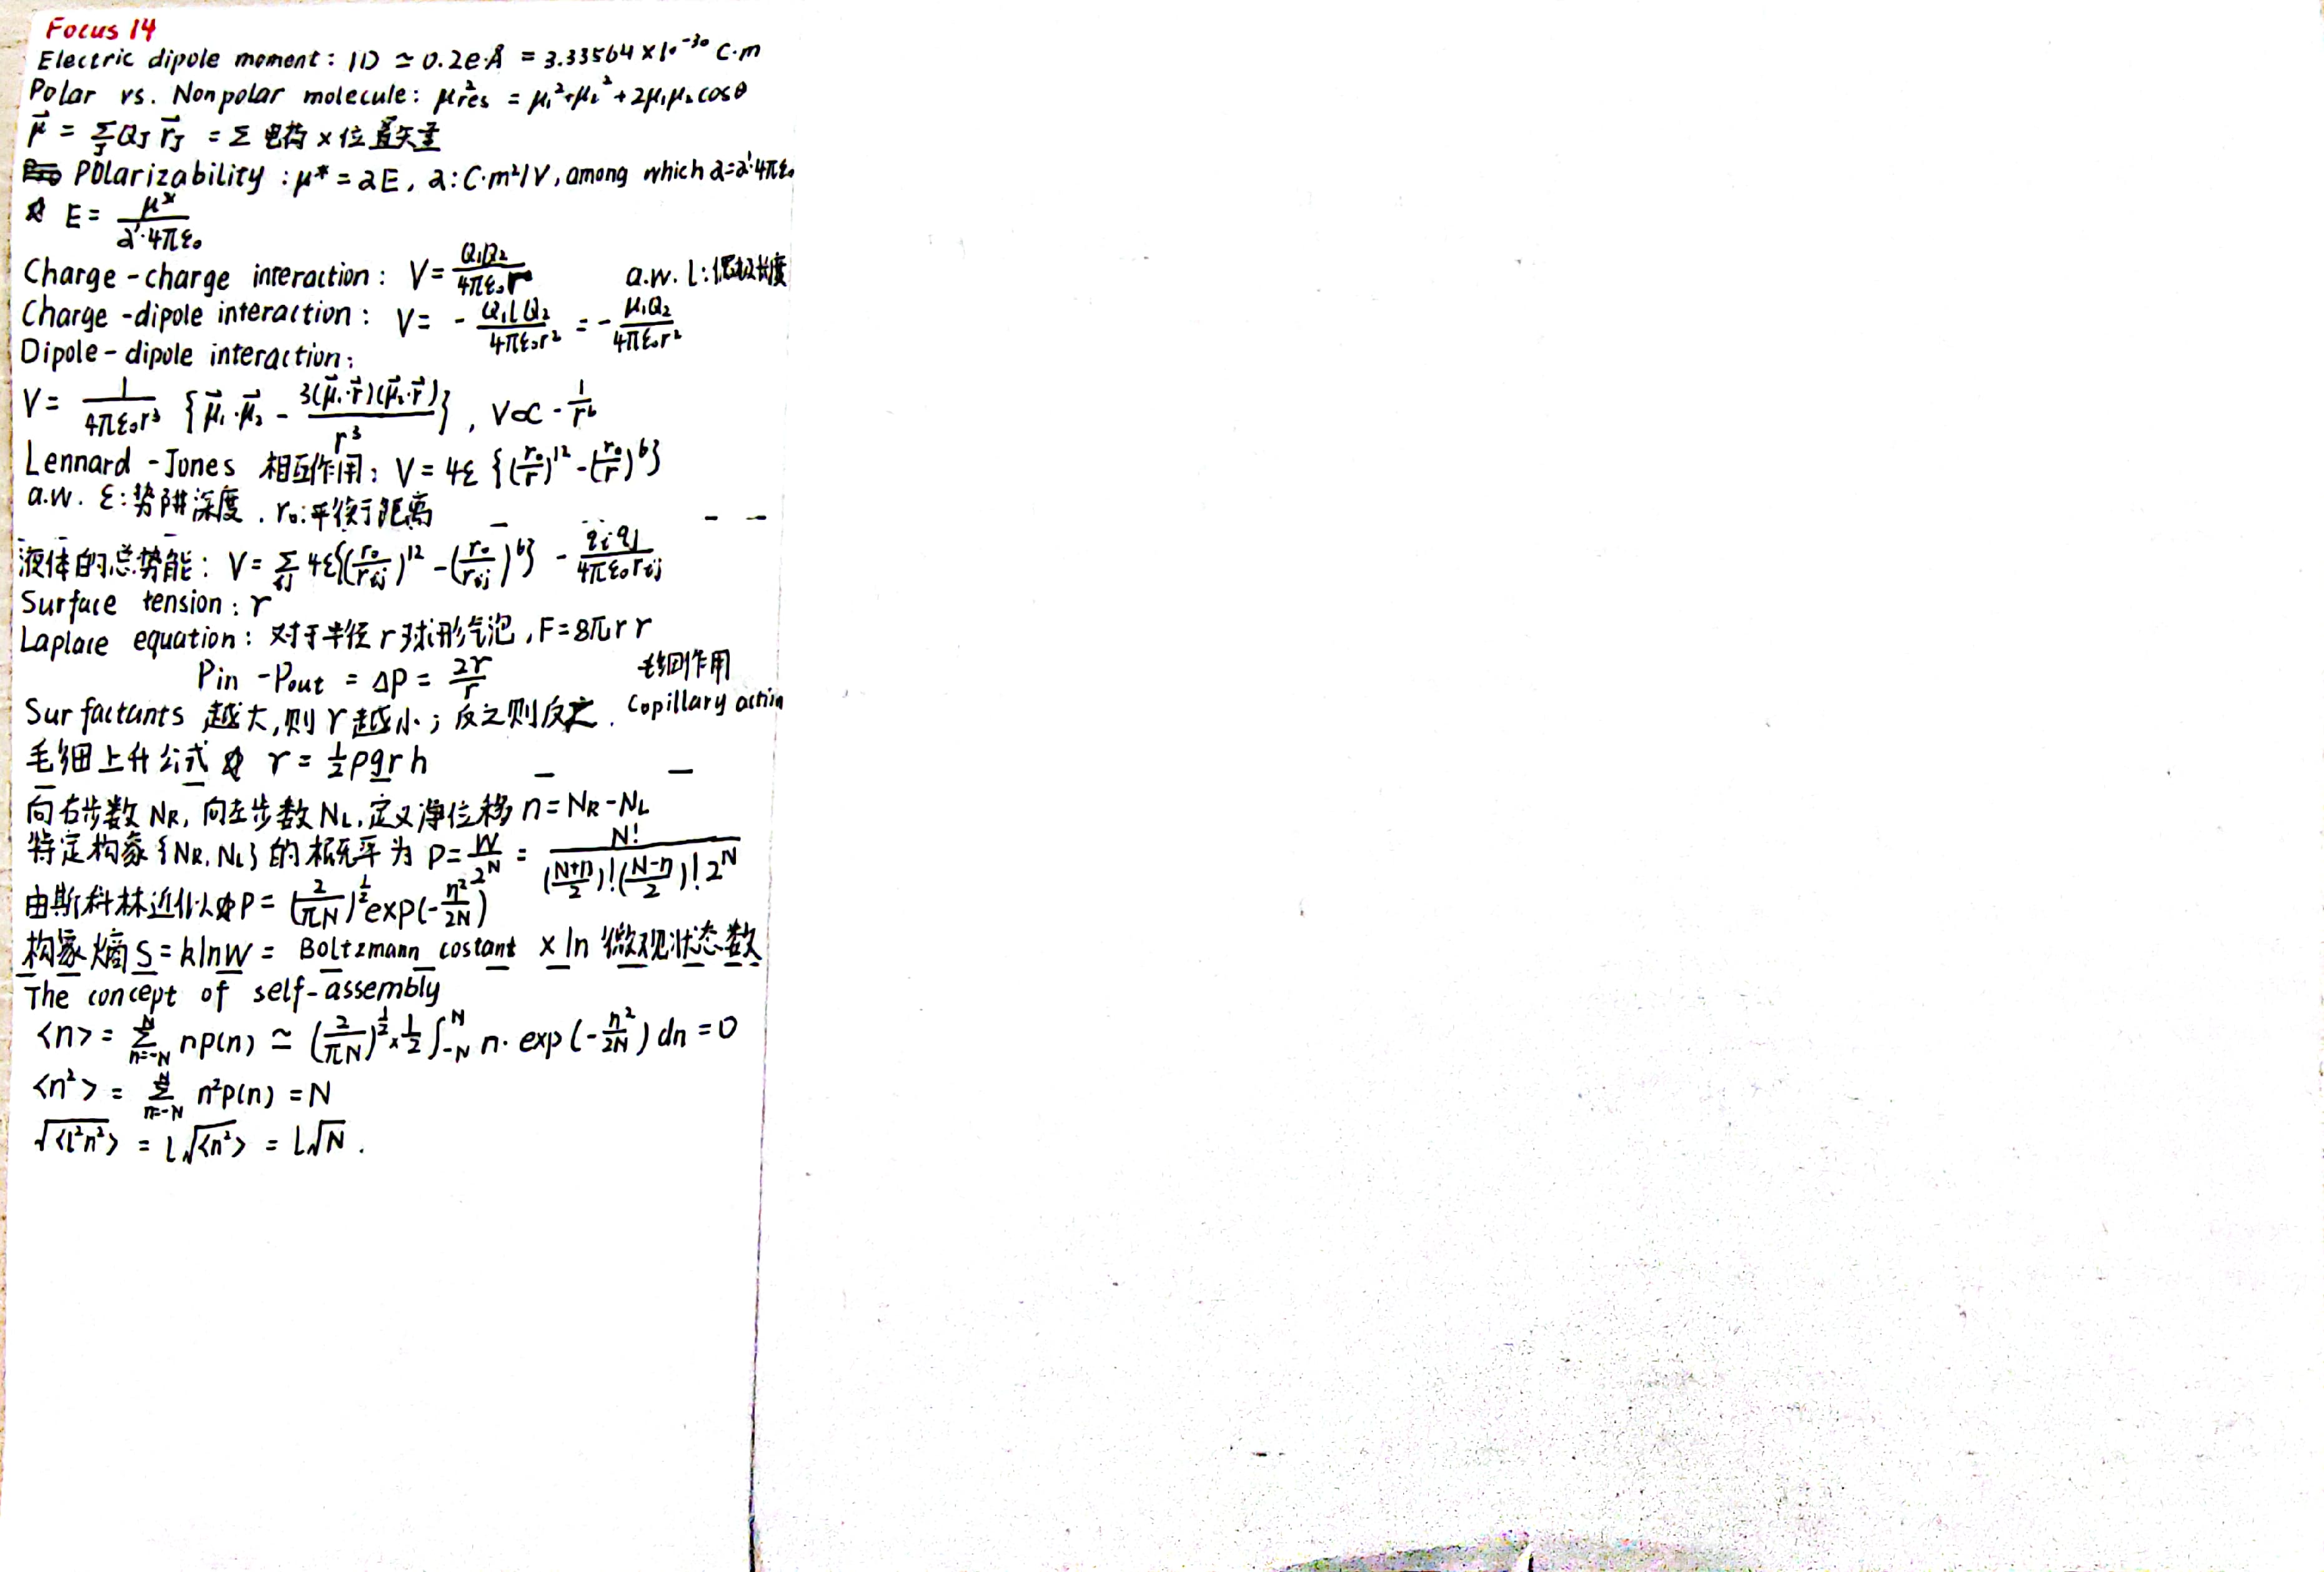 Focus 14
Electric dipole moment: 1D ≃ 0.2e·Å = 3.33564×10⁻³⁰ C·m
Polar vs. Nonpolar molecule: μ²res = μ₁²+μ₂²+2μ₁μ₂cosθ
μ⃗ = Σ_J Q_J r⃗_J = Σ 电荷×位置矢量
Polarizability: μ* = αE, α: C·m²/V, among which α=α'·4πε₀
E = μ*/(α'·4πε₀)
Charge-charge interaction: V = Q₁Q₂/(4πε₀r) a.w. l:偶极长度
Charge-dipole interaction: V = - Q₁lQ₂/(4πε₀r²) = - μ₁Q₂/(4πε₀r²)
Dipole-dipole interaction:
V = 1/(4πε₀r³) {μ⃗₁·μ⃗₂ - 3(μ⃗₁·r⃗)(μ⃗₂·r⃗)/r³}, V∝ - 1/r⁶
Lennard-Jones 相互作用: V = 4ε {(r₀/r)¹² - (r₀/r)⁶}
a.w. ε:势阱深度, r₀:平衡距离
液体的总势能: V = Σ_ij 4ε{(r₀/r_ij)¹² - (r₀/r_ij)⁶} - q_i q_j/(4πε₀r_ij)
Surface tension: γ
Laplace equation: 对于半径r球形气泡, F=8πγr
Pin - Pout = ΔP = 2γ/r 毛细作用
Surfactants 越大,则γ越小; 反之则反之. Copillary action
毛细上升公式 γ = ½ρgrh
向右步数 N_R, 向左步数 N_L, 定义净位移 n = N_R - N_L
特定构象{N_R, N_L}的概率为 P = W/2^N = N!/(((N+n)/2)!((N-n)/2)!2^N)
由斯科林近似 P = (2/πN)^½ exp(-n²/2N)
构象熵 S = klnW = Boltzmann costant × ln 微观状态数
The concept of self-assembly
<n> = Σ_{n=-N}^{N} nP(n) ≃ (2/πN)^½ × ½ ∫_{-N}^{N} n·exp(-n²/2N) dn = 0
<n²> = Σ_{n=-N}^{N} n²P(n) = N
√<l²n²> = l√<n²> = l√N.